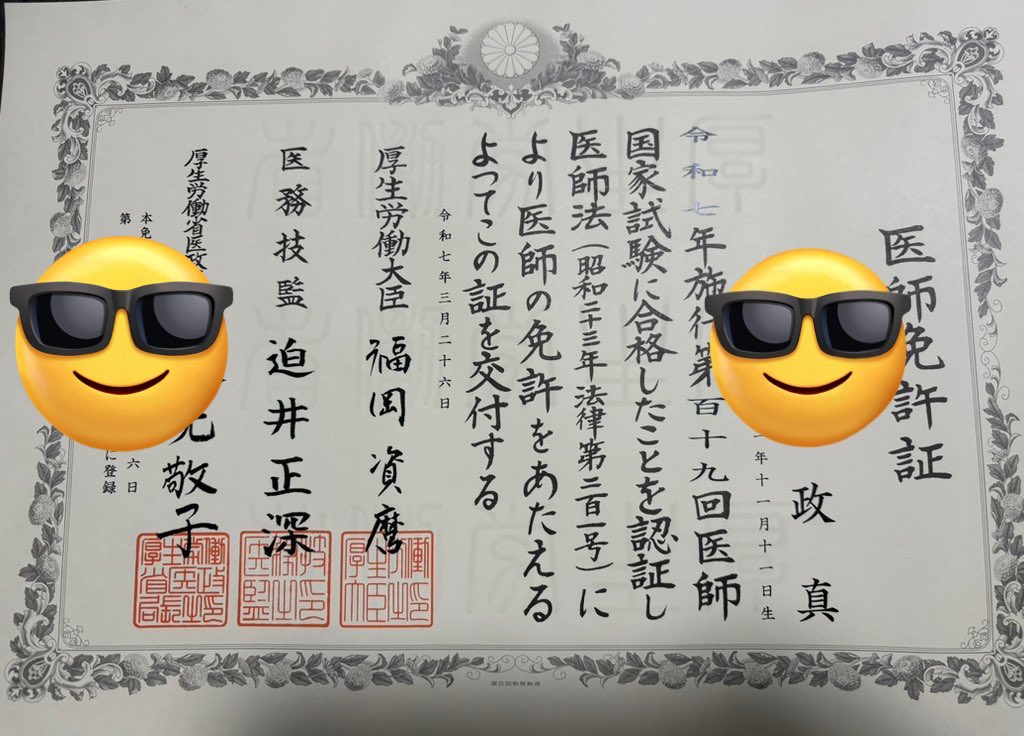 医師免許証
政真
年十一月十一日生
令和七年施行第百十九回医師
国家試験に合格したことを認証し
医師法(昭和二十三年法律第二百一号)に
より医師の免許をあたえる
よつてこの証を交付する
令和七年三月二十六日
厚生労働大臣 福岡資麿
医務技監 迫井正深
厚生労働省医政 敬子
本免
六日
第
に登録